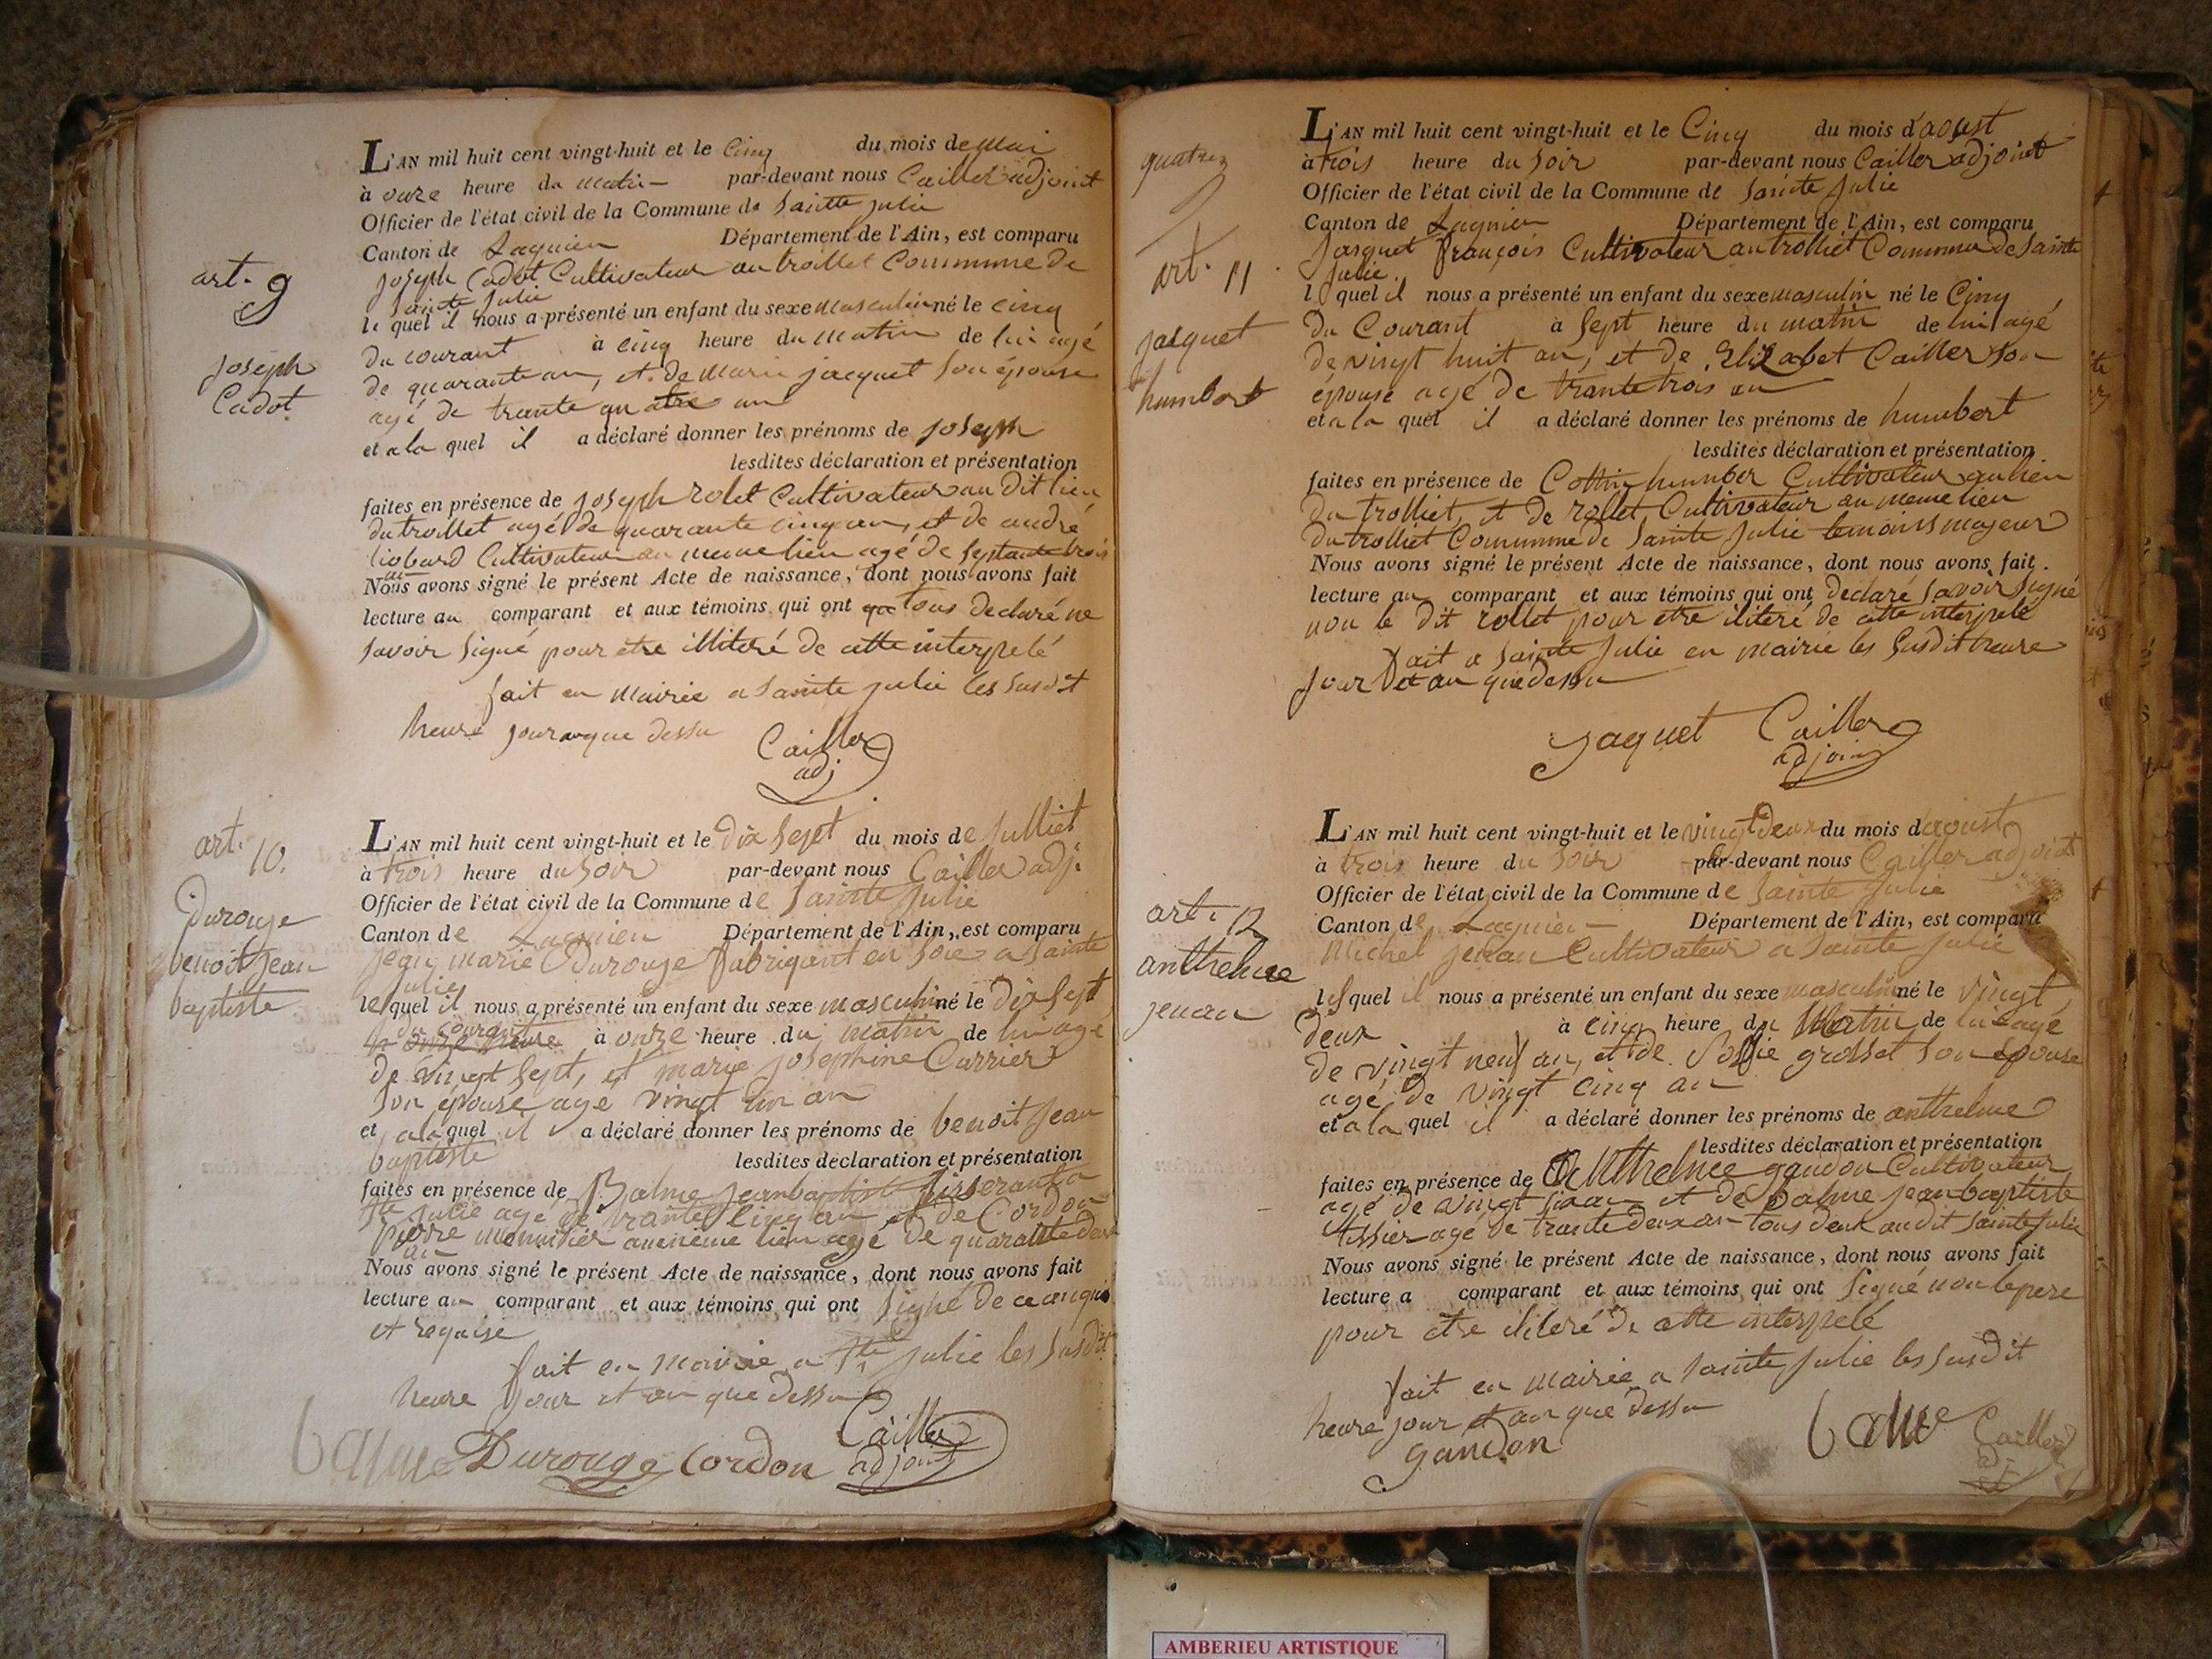 art. 9
joseph
Cadot
L'AN mil huit cent vingt-huit et le Cinq du mois de mai
à onze heure du matin par-devant nous Cailler adjoint
Officier de l'état civil de la Commune de Sainte julie
Canton de Lagnieu Département de l'Ain, est comparu
joseph Cadot Cultivateur au trolliet Commune de
Sainte Julie
le quel il nous a présenté un enfant du sexe masculin né le cinq
du courant à cinq heure du matin de lui agé
de quarante an, et de marie jacquet son épouse
agé de trante quatre an
et a la quel il a déclaré donner les prénoms de joseph
lesdites déclaration et présentation
faites en présence de joseph rolet Cultivateur au dit lieu
du trollet agé de quarante cinq an, et de andré
liobard Cultivateur au meme lieu agé de septante trois
an
Nous avons signé le présent Acte de naissance, dont nous avons fait
lecture au comparant et aux témoins qui ont tous declaré ne
savoir signé pour etre illiteré de cette interpelé
fait en mairie a Sainte julie les susdit
heure jour que dessu
Cailler
adj
art. 10.
Durouge
benoit jean
baptiste
L'AN mil huit cent vingt-huit et le dix sept du mois de julliet
à trois heure du soir par-devant nous Cailler adj.
Officier de l'état civil de la Commune de Sainte Julie
Canton de Lagnieu Département de l'Ain, est comparu
jean marie Durouge fabriquant en soie a Sainte
Julie
lequel il nous a présenté un enfant du sexe masculin né le dix sept
du courant
à onze heure du matin de lui agé
de vingt sept, et marie josephine Carrier
son épouse age vingt un an
et a la quel il a déclaré donner les prénoms de benoit jean
baptiste lesdites déclaration et présentation
faites en présence de Balme jean baptiste tisserant a
Ste julie age de trante cinq an et de Cordon
pierre menuisier au meme lieu agé de quarante deux
an
Nous avons signé le présent Acte de naissance, dont nous avons fait
lecture au comparant et aux témoins qui ont signé de ce enquis
et requise
fait en mairie a Ste julie les susdit
heure jour et an que dessu
balme Durouge Cordon Cailler
adjoint
quatre
art. 11
jacquet
humbert
L'AN mil huit cent vingt-huit et le Cinq du mois d'aoust
à trois heure du soir par-devant nous Cailler adjoint
Officier de l'état civil de la Commune de Sainte Julie
Canton de Lagnieu Département de l'Ain, est comparu
Jasquet françois Cultivateur au trolliet Commune de Sainte
Julie
l quel il nous a présenté un enfant du sexe masculin né le Cinq
du Courant à sept heure du matin de lui agé
de vingt huit an, et de Elizabet Cailler son
épouse agé de trante trois an
et a la quel il a déclaré donner les prénoms de humbert
lesdites déclaration et présentation
faites en présence de Cottin humber Cultivateur au lieu
du trolliet, et de rollet Cultivateur au meme lieu
du trolliet Commune de Sainte Julie temoins majeur
Nous avons signé le présent Acte de naissance, dont nous avons fait
lecture au comparant et aux témoins qui ont declaré savoir signé
non le dit rollet pour etre iliteré de cette interpelé
fait a Sainte Julie en mairie les susdit heure
jour et an que dessu
jaquet Cailler
adjoint
art. 12
anthelme
jeuan
L'AN mil huit cent vingt-huit et le vingt deux du mois d'aoust
à trois heure du soir par-devant nous Cailler adjoint
Officier de l'état civil de la Commune de Sainte Julie
Canton de Lagnieu Département de l'Ain, est comparu
Michel jeuan Cultivateur a Sainte Julie
lequel il nous a présenté un enfant du sexe masculin né le vingt
deux à cinq heure du Matin de lui agé
de vingt neuf an, et de Soffie grosset son épouse
agé de vingt cinq an
et a la quel il a déclaré donner les prénoms de anthelme
lesdites déclaration et présentation
faites en présence de Anthelme gandon Cultivateur
agé de vingt six an et de balme jean baptiste
tissier agé de trante deux an tous deux au dit Sainte Julie
Nous avons signé le présent Acte de naissance, dont nous avons fait
lecture a comparant et aux témoins qui ont signé non le pere
pour etre iliteré de cette interpelé
fait en mairie a Sainte Julie les susdit
heure jour et an que dessu
gandon balme Cailler
adj
AMBERIEU ARTISTIQUE